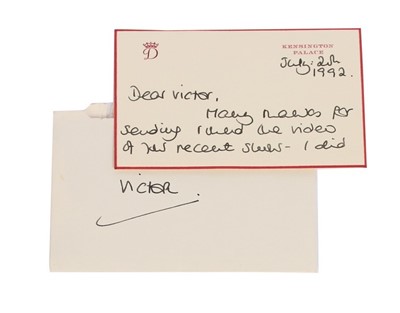 D
KENSINGTON
PALACE
July: 20th
1992.
Dear Victor,
Many thanks for
sending round the video
of your recent shows - I did
VICTOR